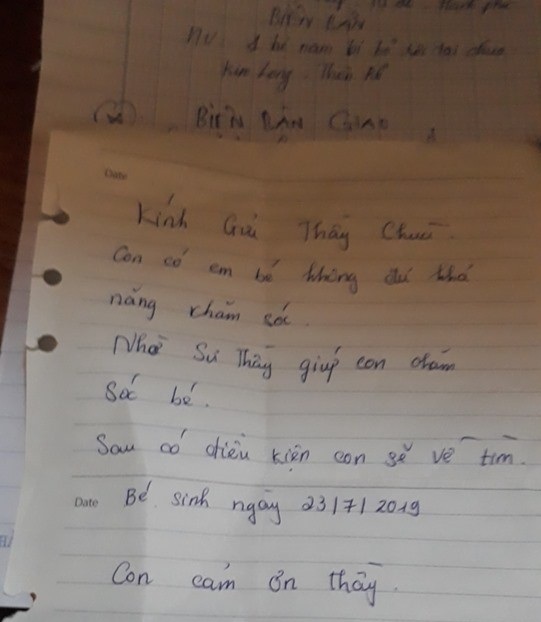 BIÊN BẢN
1 bé nam bị bỏ rơi tại chùa
Kim Long
BIÊN BẢN GIAO
Date
Kính Gửi Thầy Chùa.
Con có em bé không đủ khả
năng chăm sóc.
Nhờ Sư Thầy giúp con chăm
Sóc bé.
Sau có điều kiện con sẽ về tìm.
Date Bé sinh ngày 23/7/2019
Con cảm ơn thầy.